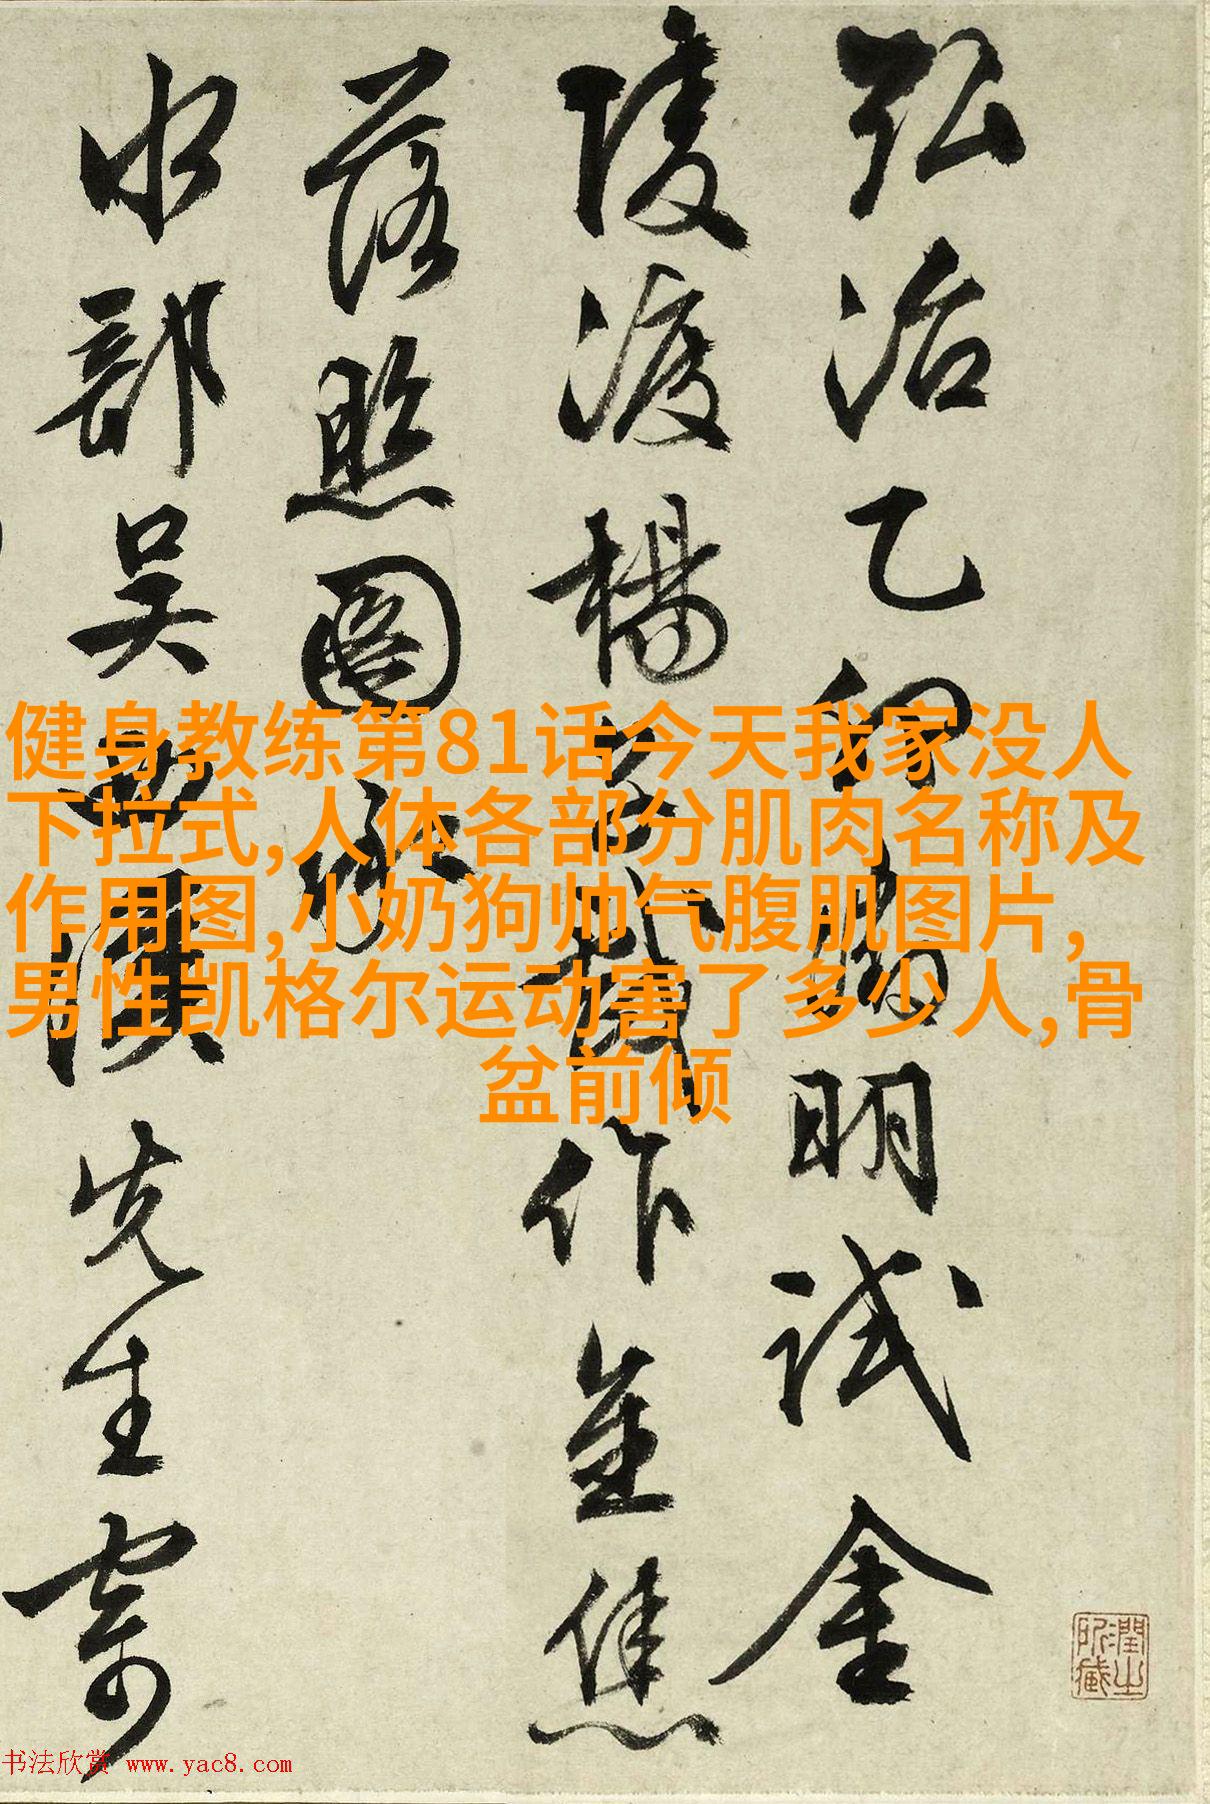 弘治乙卯明試金
陵渡楊子戲作金焦
落照圖承
水部吳西先生寄
健身教练第81话今天我家没人
下拉式,人体各部分肌肉名称及
作用图,小奶狗帅气腹肌图片,
男性凯格尔运动害了多少人,骨
盆前倾
潤之所藏
书法欣赏 www.yac8.com